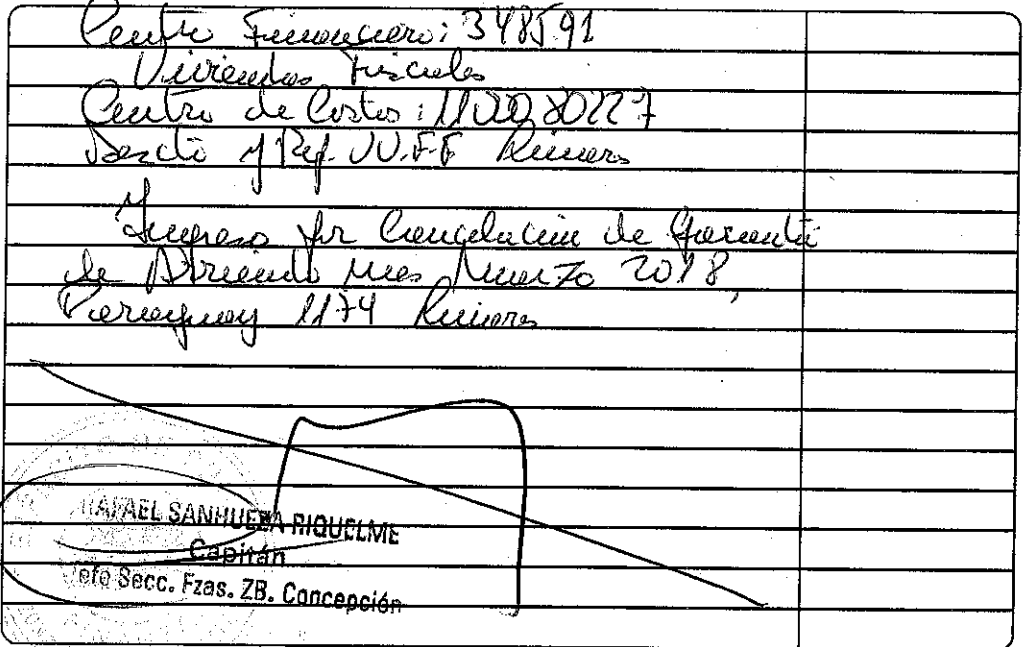 Centro Financiero: 348591
Viviendas Fiscales
Centro de Costos: 110280227
y Rep. VV.FF
Ingreso por Cancelación de Garantía
de Arriendo mes Marzo 2018,
Paraguay 1174
RAFAEL SANHUEZA RIQUELME
Capitán
Jefe Secc. Fzas. ZB. Concepción